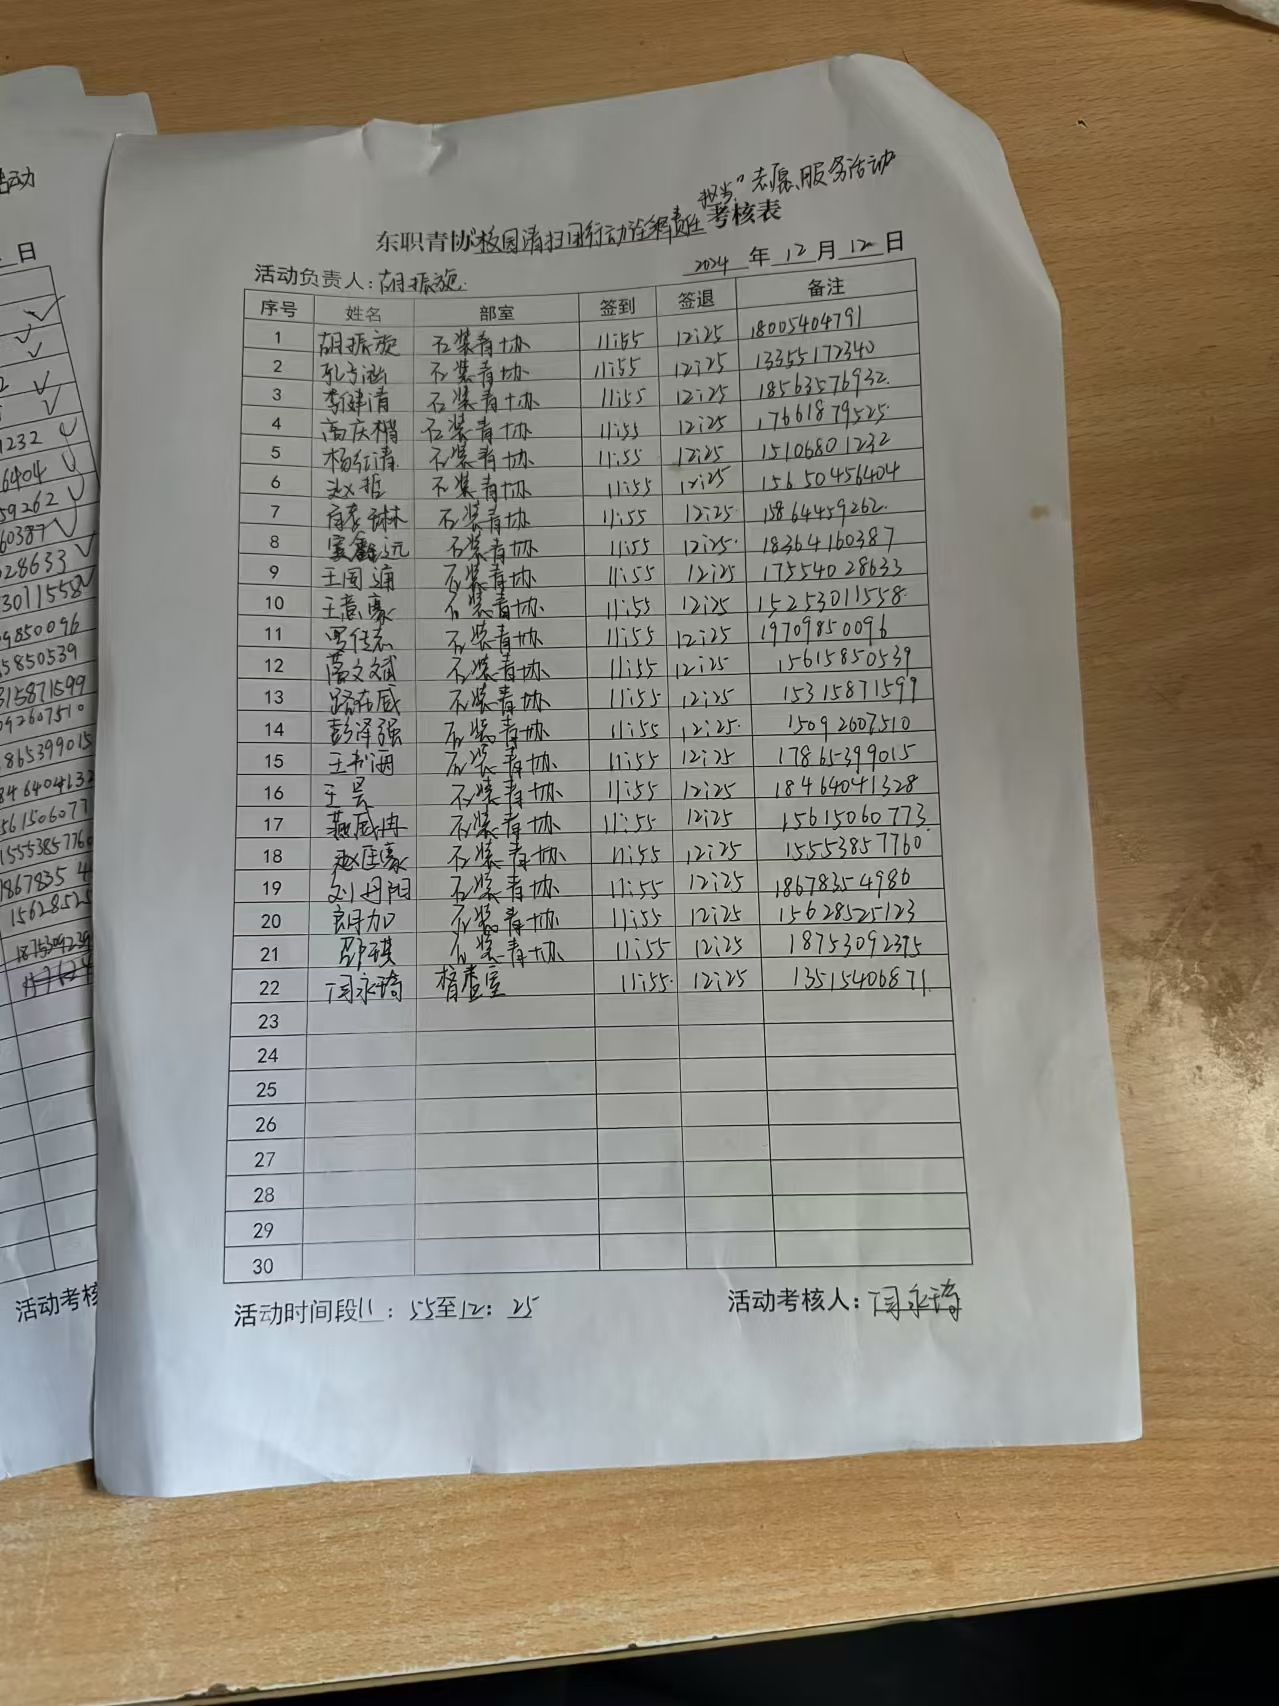 动
日
1232
6404
59262
60387
028633
3011558
09850096
5850539
315871599
092607510
1865399015
846404132
561506077
15553857760
1867835 4
15628525
1875309239
活动考核
担当"志愿服务活动
东职青协"校园清扫因行动诠释责任考核表
活动负责人:胡振旋 2024年12月12日
序号 姓名 部室 签到 签退 备注
1 胡振旋 石装青协 11:55 12:25 18005404791
2 孔 涵 石装青协 11:55 12:25 13355172340
3 李健清 石装青协 11:55 12:25 18563576932
4 高庆楷 石装青协 11:55 12:25 17661879525
5 杨 清 石装青协 11:55 12:25 15106801232
6 赵 石装青协 11:55 12:25 15650456404
7 琳 石装青协 11:55 12:25 15864459262
8 远 石装青协 11:55 12:25 18364160387
9 王国 石装青协 11:55 12:25 17554028633
10 王意豪 石装青协 11:55 12:25 15253011558
11 石装青协 11:55 12:25 19709850096
12 文斌 石装青协 11:55 12:25 15615850539
13 路 威 石装青协 11:55 12:25 15315871599
14 彭泽强 石装青协 11:55 12:25 15092607510
15 王书雨 石装青协 11:55 12:25 17865399015
16 王昊 石装青协 11:55 12:25 18464041328
17 燕威冉 石装青协 11:55 12:25 15615060773
18 赵匡豪 石装青协 11:55 12:25 15553857760
19 刘丹阳 石装青协 11:55 12:25 18678354986
20 加 石装青协 11:55 12:25 15628525123
21 邵琪 石装青协 11:55 12:25 18753092395
22 闫永琦 督查室 11:55 12:25 13515406871
23
24
25
26
27
28
29
30
活动时间段11:55至12:25 活动考核人:闫永琦